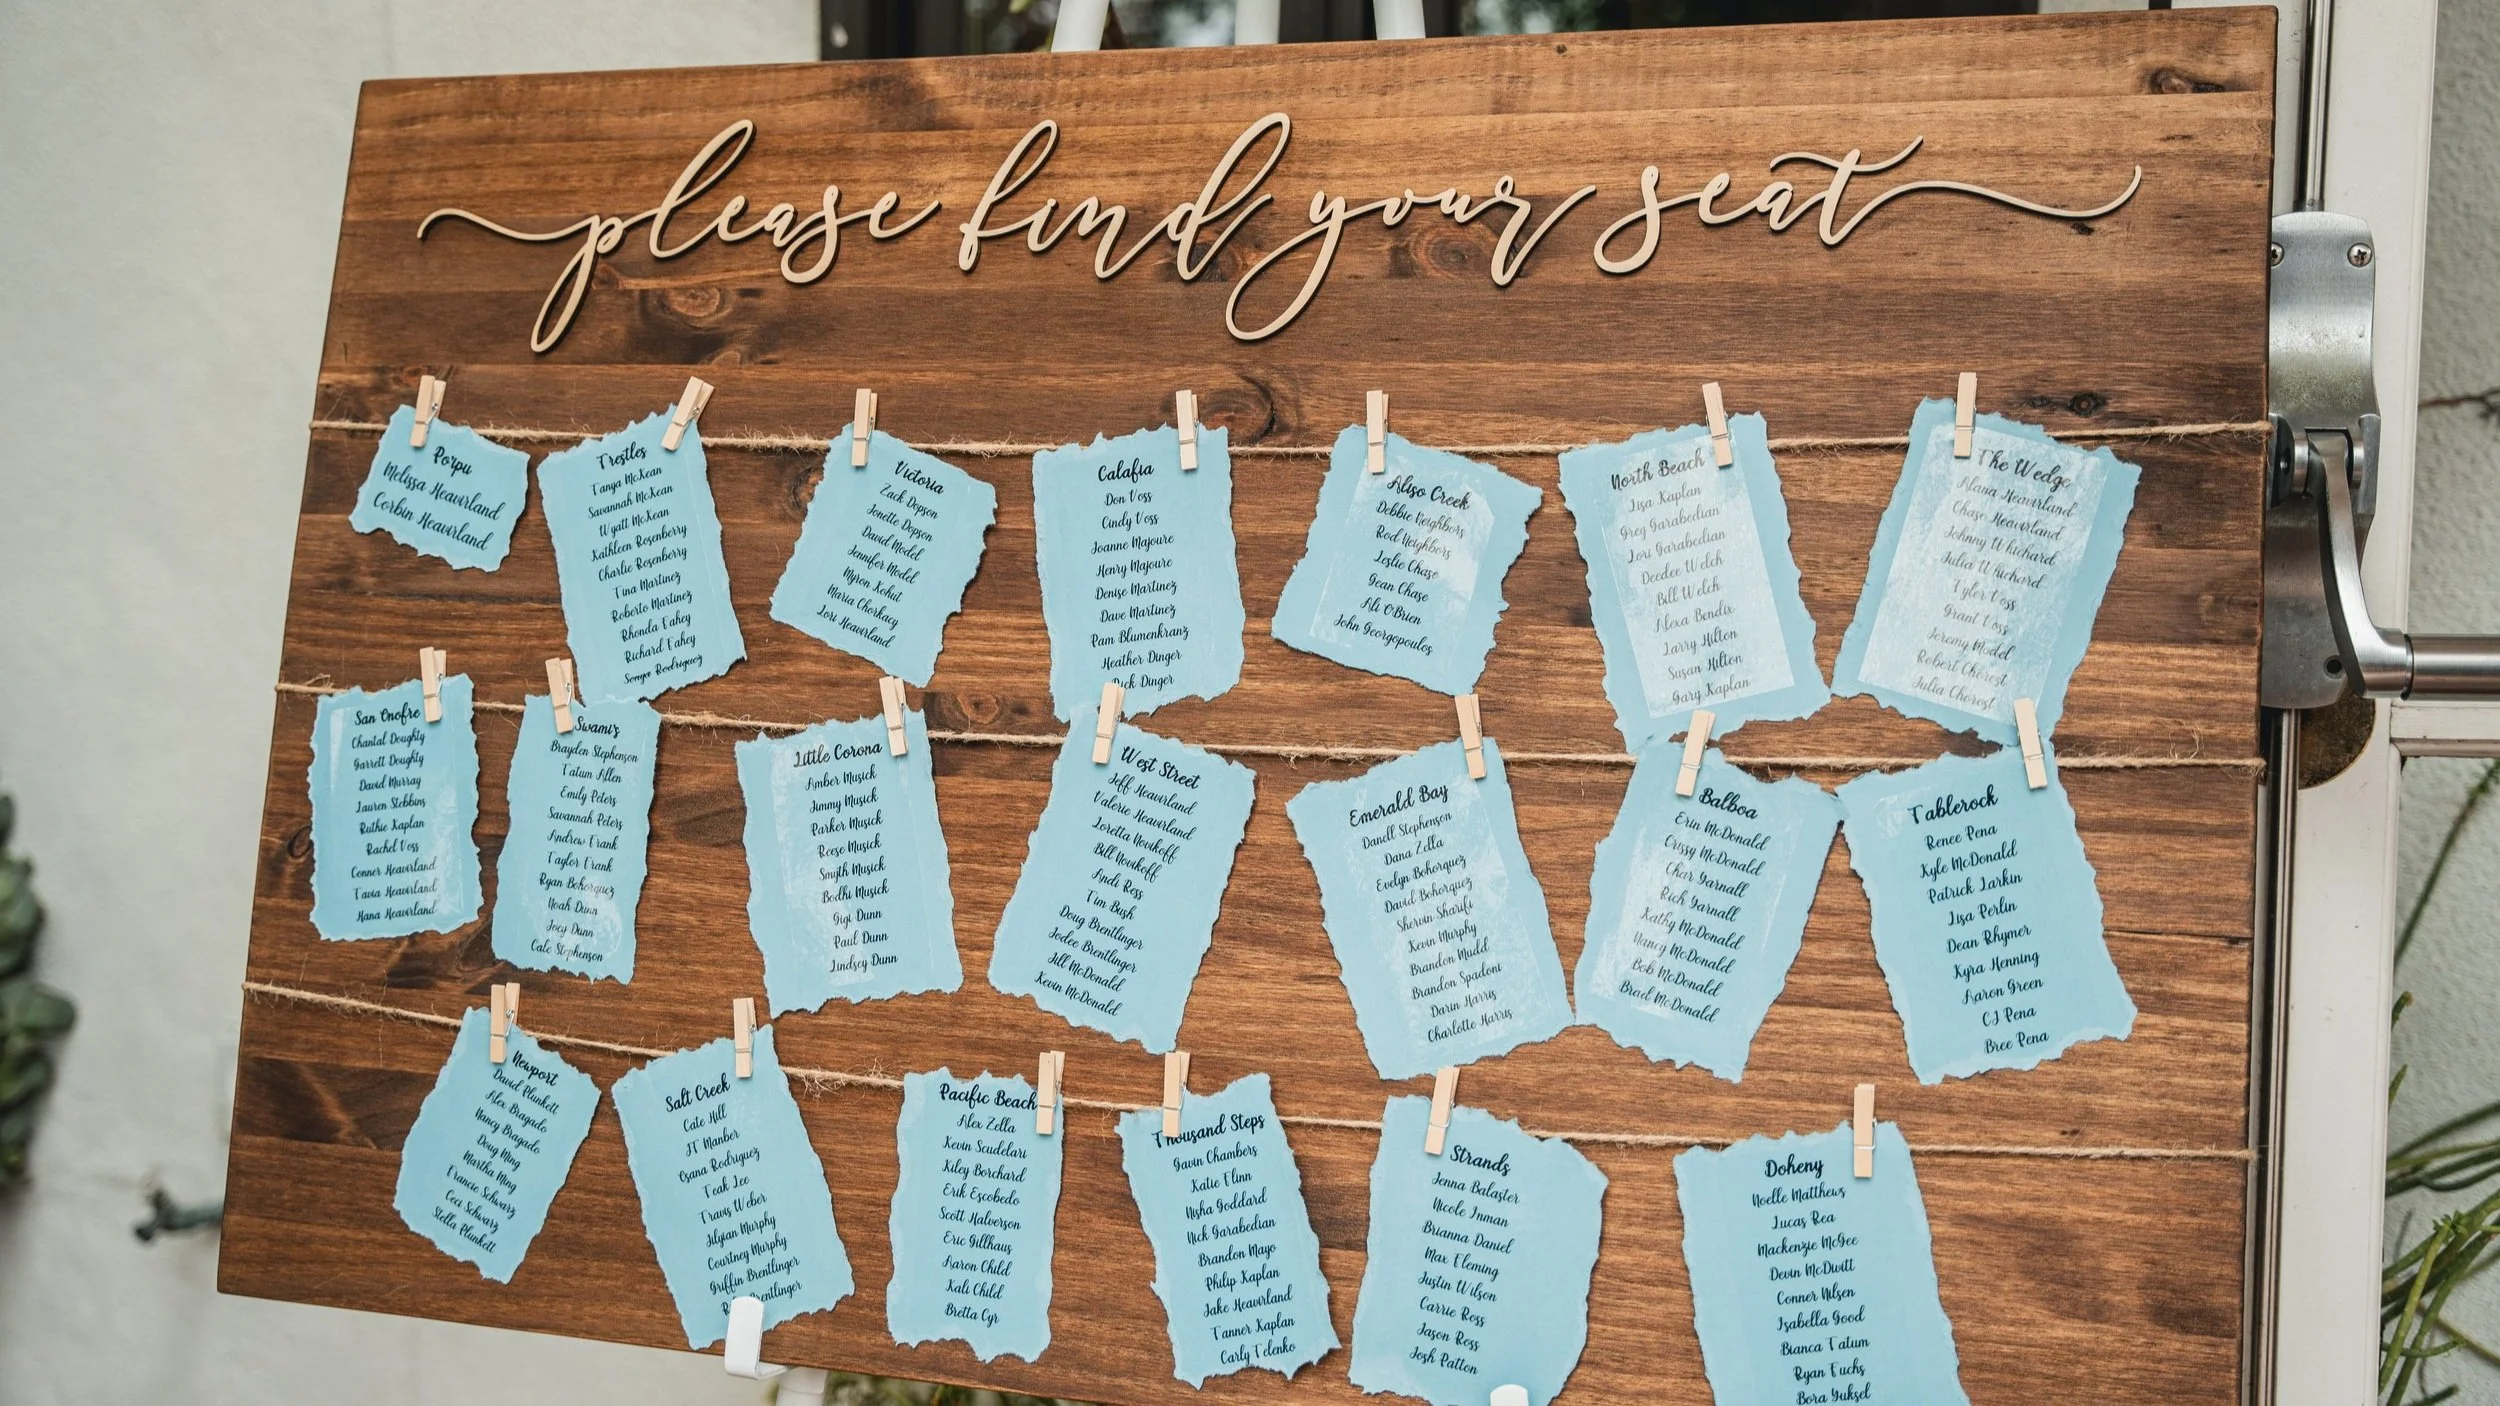 please find your seat
Porpu
Melissa Heavirland
Corbin Heavirland
Trestles
Tanya McKean
Savannah McKean
Wyatt McKean
Kathleen Rosenberry
Charlie Rosenberry
Tina Martinez
Roberto Martinez
Rhonda Fahey
Richard Fahey
Sonya Rodriguez
Victoria
Zack Dopson
Jonette Dopson
David Model
Jennifer Model
Myron Kohut
Maria Chorkacy
Lori Heavirland
Calafia
Don Voss
Cindy Voss
Joanne Majoure
Henry Majoure
Denise Martinez
Dave Martinez
Pam Blumenkranz
Heather Dinger
Dinger
Aliso Creek
Debbie Neighbors
Rod Neighbors
Leslie Chase
Gean Chase
Ali O'Brien
John Georgopoulos
North Beach
Lisa Kaplan
Greg Garabedian
Lori Garabedian
Deedee Welch
Bill Welch
Alexa Bendix
Larry Hilton
Susan Hilton
Gary Kaplan
The Wedge
Alana Heavirland
Chase Heavirland
Johnny Whichard
Julia Whichard
Tyler Voss
Grant Voss
Jeremy Model
Robert Chorost
Julia Chorost
San Onofre
Chantal Doughty
Garrett Doughty
David Murray
Lauren Stebbins
Ruthie Kaplan
Rachel Voss
Conner Heavirland
Tavia Heavirland
Hana Heavirland
Swami's
Brayden Stephenson
Tatum Allen
Emily Peters
Savannah Peters
Andrew Frank
Taylor Frank
Ryan Bohorquez
Noah Dunn
Joey Dunn
Cale Stephenson
Little Corona
Amber Musick
Jimmy Musick
Parker Musick
Reese Musick
Smyth Musick
Bodhi Musick
Gigi Dunn
Paul Dunn
Lindsey Dunn
West Street
Jeff Heavirland
Valerie Heavirland
Loretta Novikoff
Bill Novikoff
Andi Ress
Tim Bush
Doug Brentlinger
Jodee Brentlinger
Jill McDonald
Kevin McDonald
Emerald Bay
Danell Stephenson
Dana Zella
Evelyn Bohorquez
David Bohorquez
Shervin Sharifi
Kevin Murphy
Brandon Mudd
Brandon Spadoni
Darin Harris
Charlotte Harris
Balboa
Erin McDonald
Crissy McDonald
Char Yarnall
Rich Yarnall
Kathy McDonald
Nancy McDonald
Bob McDonald
Brad McDonald
Tablerock
Renee Pena
Kyle McDonald
Patrick Larkin
Lisa Perlin
Dean Rhymer
Kyra Henning
Aaron Green
CJ Pena
Bree Pena
Newport
David Plunkett
Alex Bragado
Nancy Bragado
Doug Ming
Martha Ming
Francie Schwarz
Ceci Schwarz
Stella Plunkett
Salt Creek
Cate Hill
JT Manber
Osana Rodriguez
Teak Lee
Travis Weber
Jilyian Murphy
Courtney Murphy
Griffin Brentlinger
Brentlinger
Pacific Beach
Alex Zella
Kevin Scudelari
Kiley Borchard
Erik Escobedo
Scott Halverson
Eric Gillhaus
Aaron Child
Kali Child
Bretta Cyr
Thousand Steps
Gavin Chambers
Katie Flinn
Nisha Goddard
Nick Garabedian
Brandon Mayo
Philip Kaplan
Jake Heavirland
Tanner Kaplan
Carly Telenko
Strands
Jenna Balaster
Nicole Inman
Brianna Daniel
Max Fleming
Justin Wilson
Carrie Ross
Jason Ross
Josh Patton
Doheny
Noelle Matthews
Lucas Rea
Mackenzie McGee
Devin McDivitt
Conner Nilsen
Isabella Good
Bianca Tatum
Ryan Fuchs
Bora Yuksel